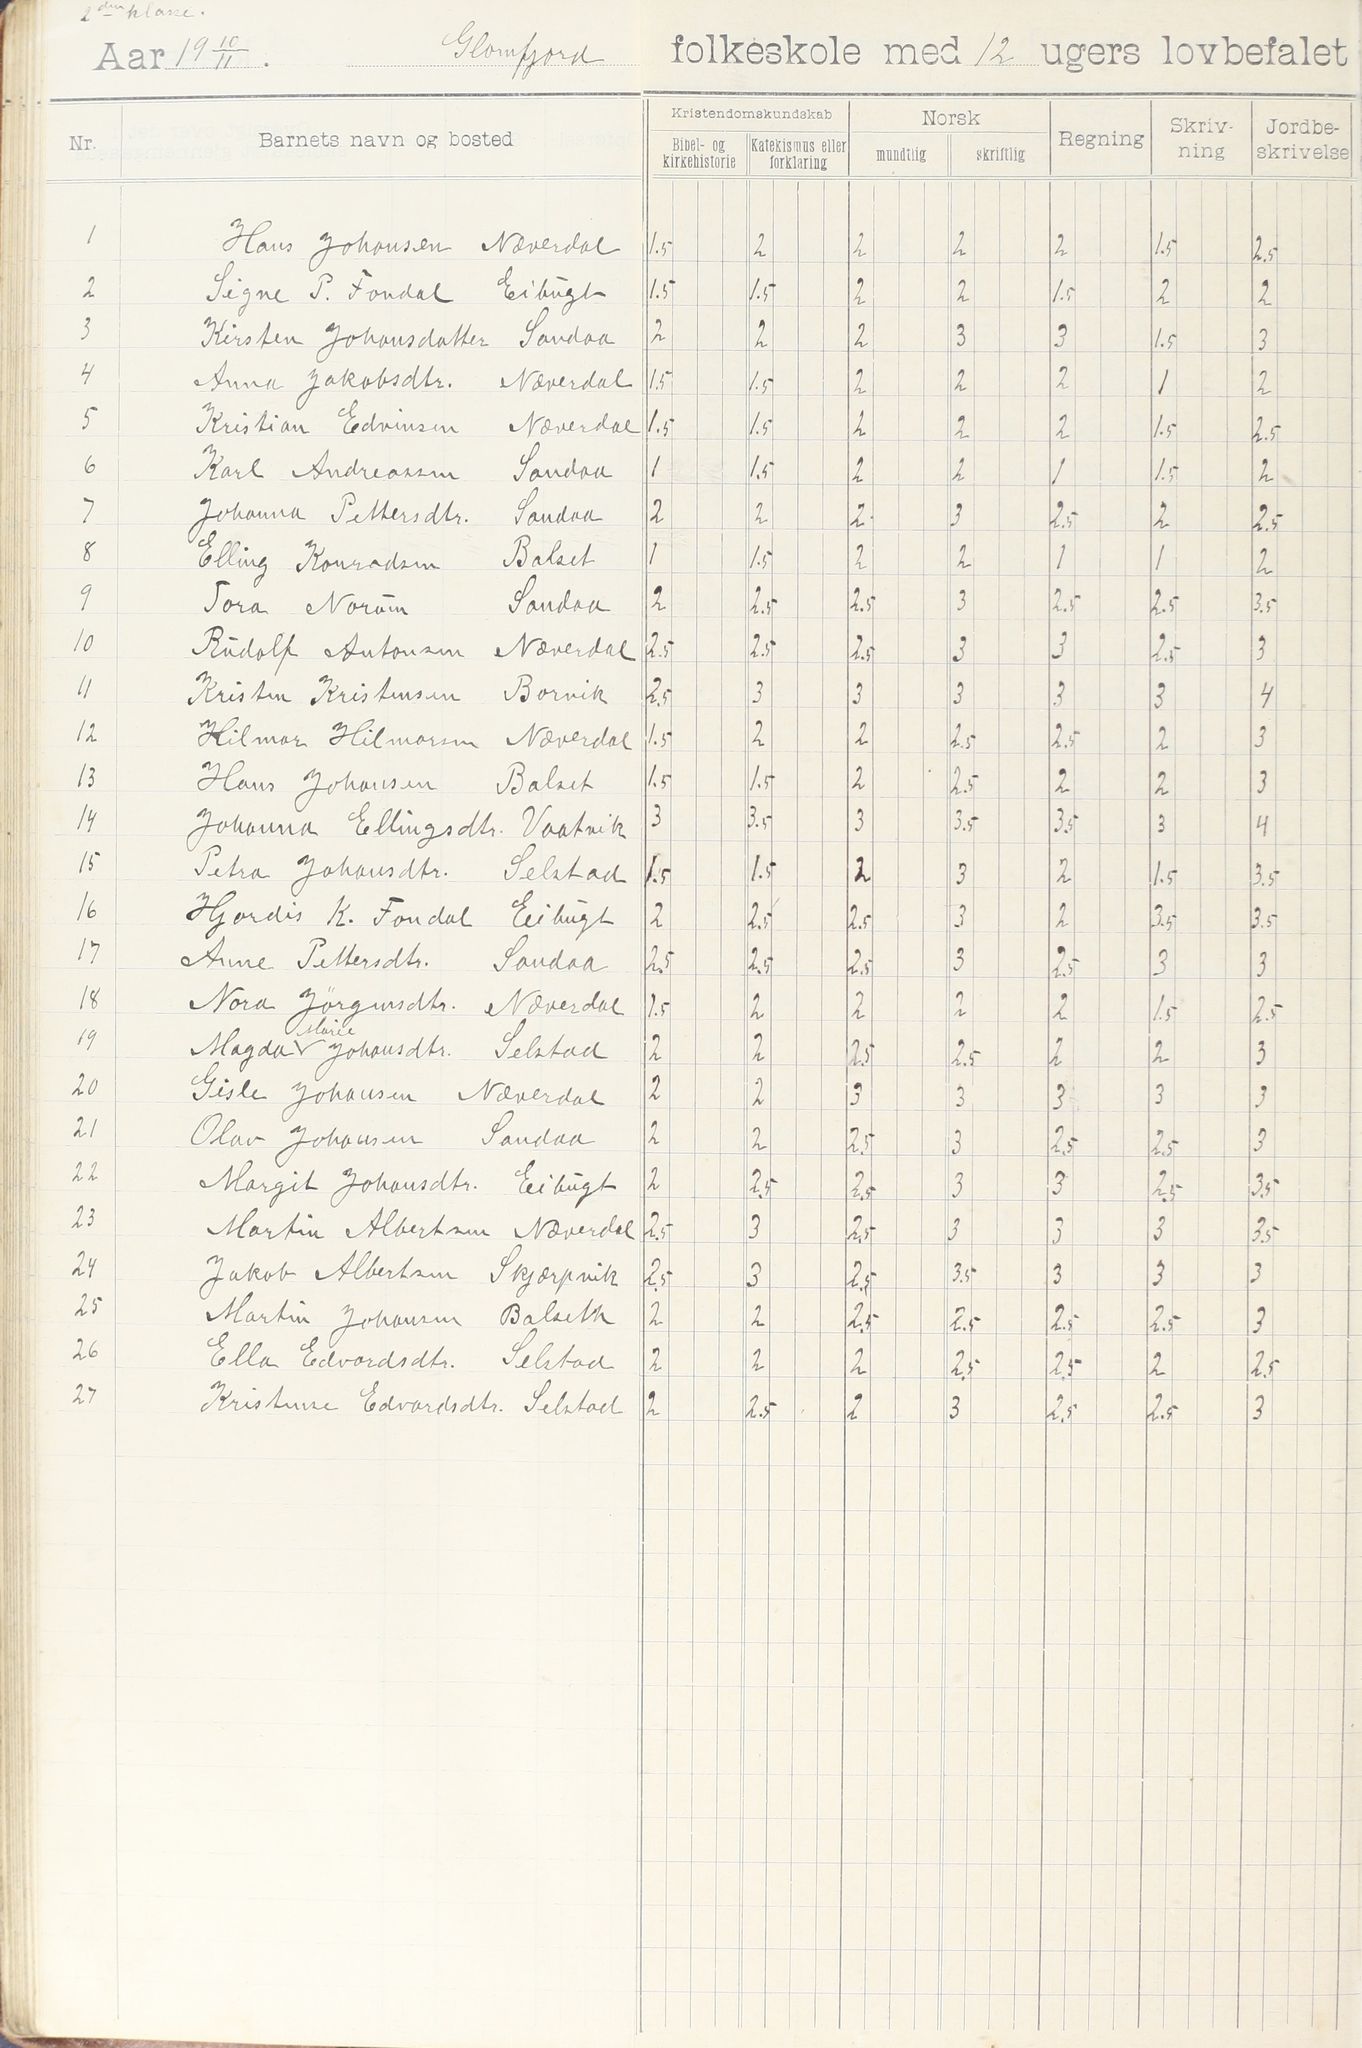 2den klasse.
Aar 19 10/11. Glomfjord folkeskole med 12 ugers lovbefalet
Nr. Barnets navn og bosted Kristendomskundskab Norsk Regning Skriv-ning Jordbe-skrivelse
Bibel- og kirkehistorie Katekismus eller forklaring mundtlig skriftlig
1 Hans Johansen Næverdal 1.5 2 2 2 2 1.5 2.5
2 Signe P. Fondal Eibugt 1.5 1.5 2 2 1.5 2 2
3 Kirsten Johansdatter Sandaa 2 2 2 3 3 1.5 3
4 Anna Jakobsdtr. Næverdal 1.5 1.5 2 2 2 1 2
5 Kristian Edvinsen Næverdal 1.5 1.5 2 2 2 1.5 2.5
6 Karl Andreassen Sandaa 1 1.5 2 2 1 1.5 2
7 Johanna Pettersdtr. Sandaa 2 2 2 3 2.5 2 2.5
8 Elling Konradsen Balset 1 1.5 2 2 1 1 2
9 Tora Norum Sandaa 2 2.5 2.5 3 2.5 2.5 3.5
10 Rudolf Antonsen Næverdal 2.5 2.5 2.5 3 3 2.5 3
11 Kristen Kristensen Borvik 2.5 3 3 3 3 3 4
12 Hilmar Hilmarsen Næverdal 1.5 2 2 2.5 2.5 2 3
13 Hans Johansen Balset 1.5 1.5 2 2.5 2 2 3
14 Johanna Ellingsdtr. Vaatvik 3 3.5 3 3.5 3.5 3 4
15 Petra Johansdtr. Selstad 1.5 1.5 2 3 2 1.5 3.5
16 Hjordis K. Fondal Eibugt 2 2.5 2.5 3 2 3.5 3.5
17 Anne Pettersdtr. Sandaa 2.5 2.5 2.5 3 2.5 3 3
18 Nora Jörgensdtr. Næverdal 1.5 2 2 2 2 1.5 2.5
19 Magda Marie Johansdtr. Selstad 2 2 2.5 2.5 2 2 3
20 Gisle Johansen Næverdal 2 2 3 3 3 3 3
21 Olav Johansen Sandaa 2 2 2.5 3 2.5 2.5 3
22 Margit Johansdtr. Eibugt 2 2.5 2.5 3 3 2.5 3.5
23 Martin Albertsen Næverdal 2.5 3 2.5 3 3 3 3.5
24 Jakob Albertsen Skjærpvik 2.5 3 2.5 3.5 3 3 3
25 Martin Johansen Balseth 2 2 2.5 2.5 2.5 2.5 3
26 Ella Edvardsdtr. Selstad 2 2 2 2.5 2.5 2 2.5
27 Kristine Edvardsdtr. Selstad 2 2.5 2 3 2.5 2.5 3